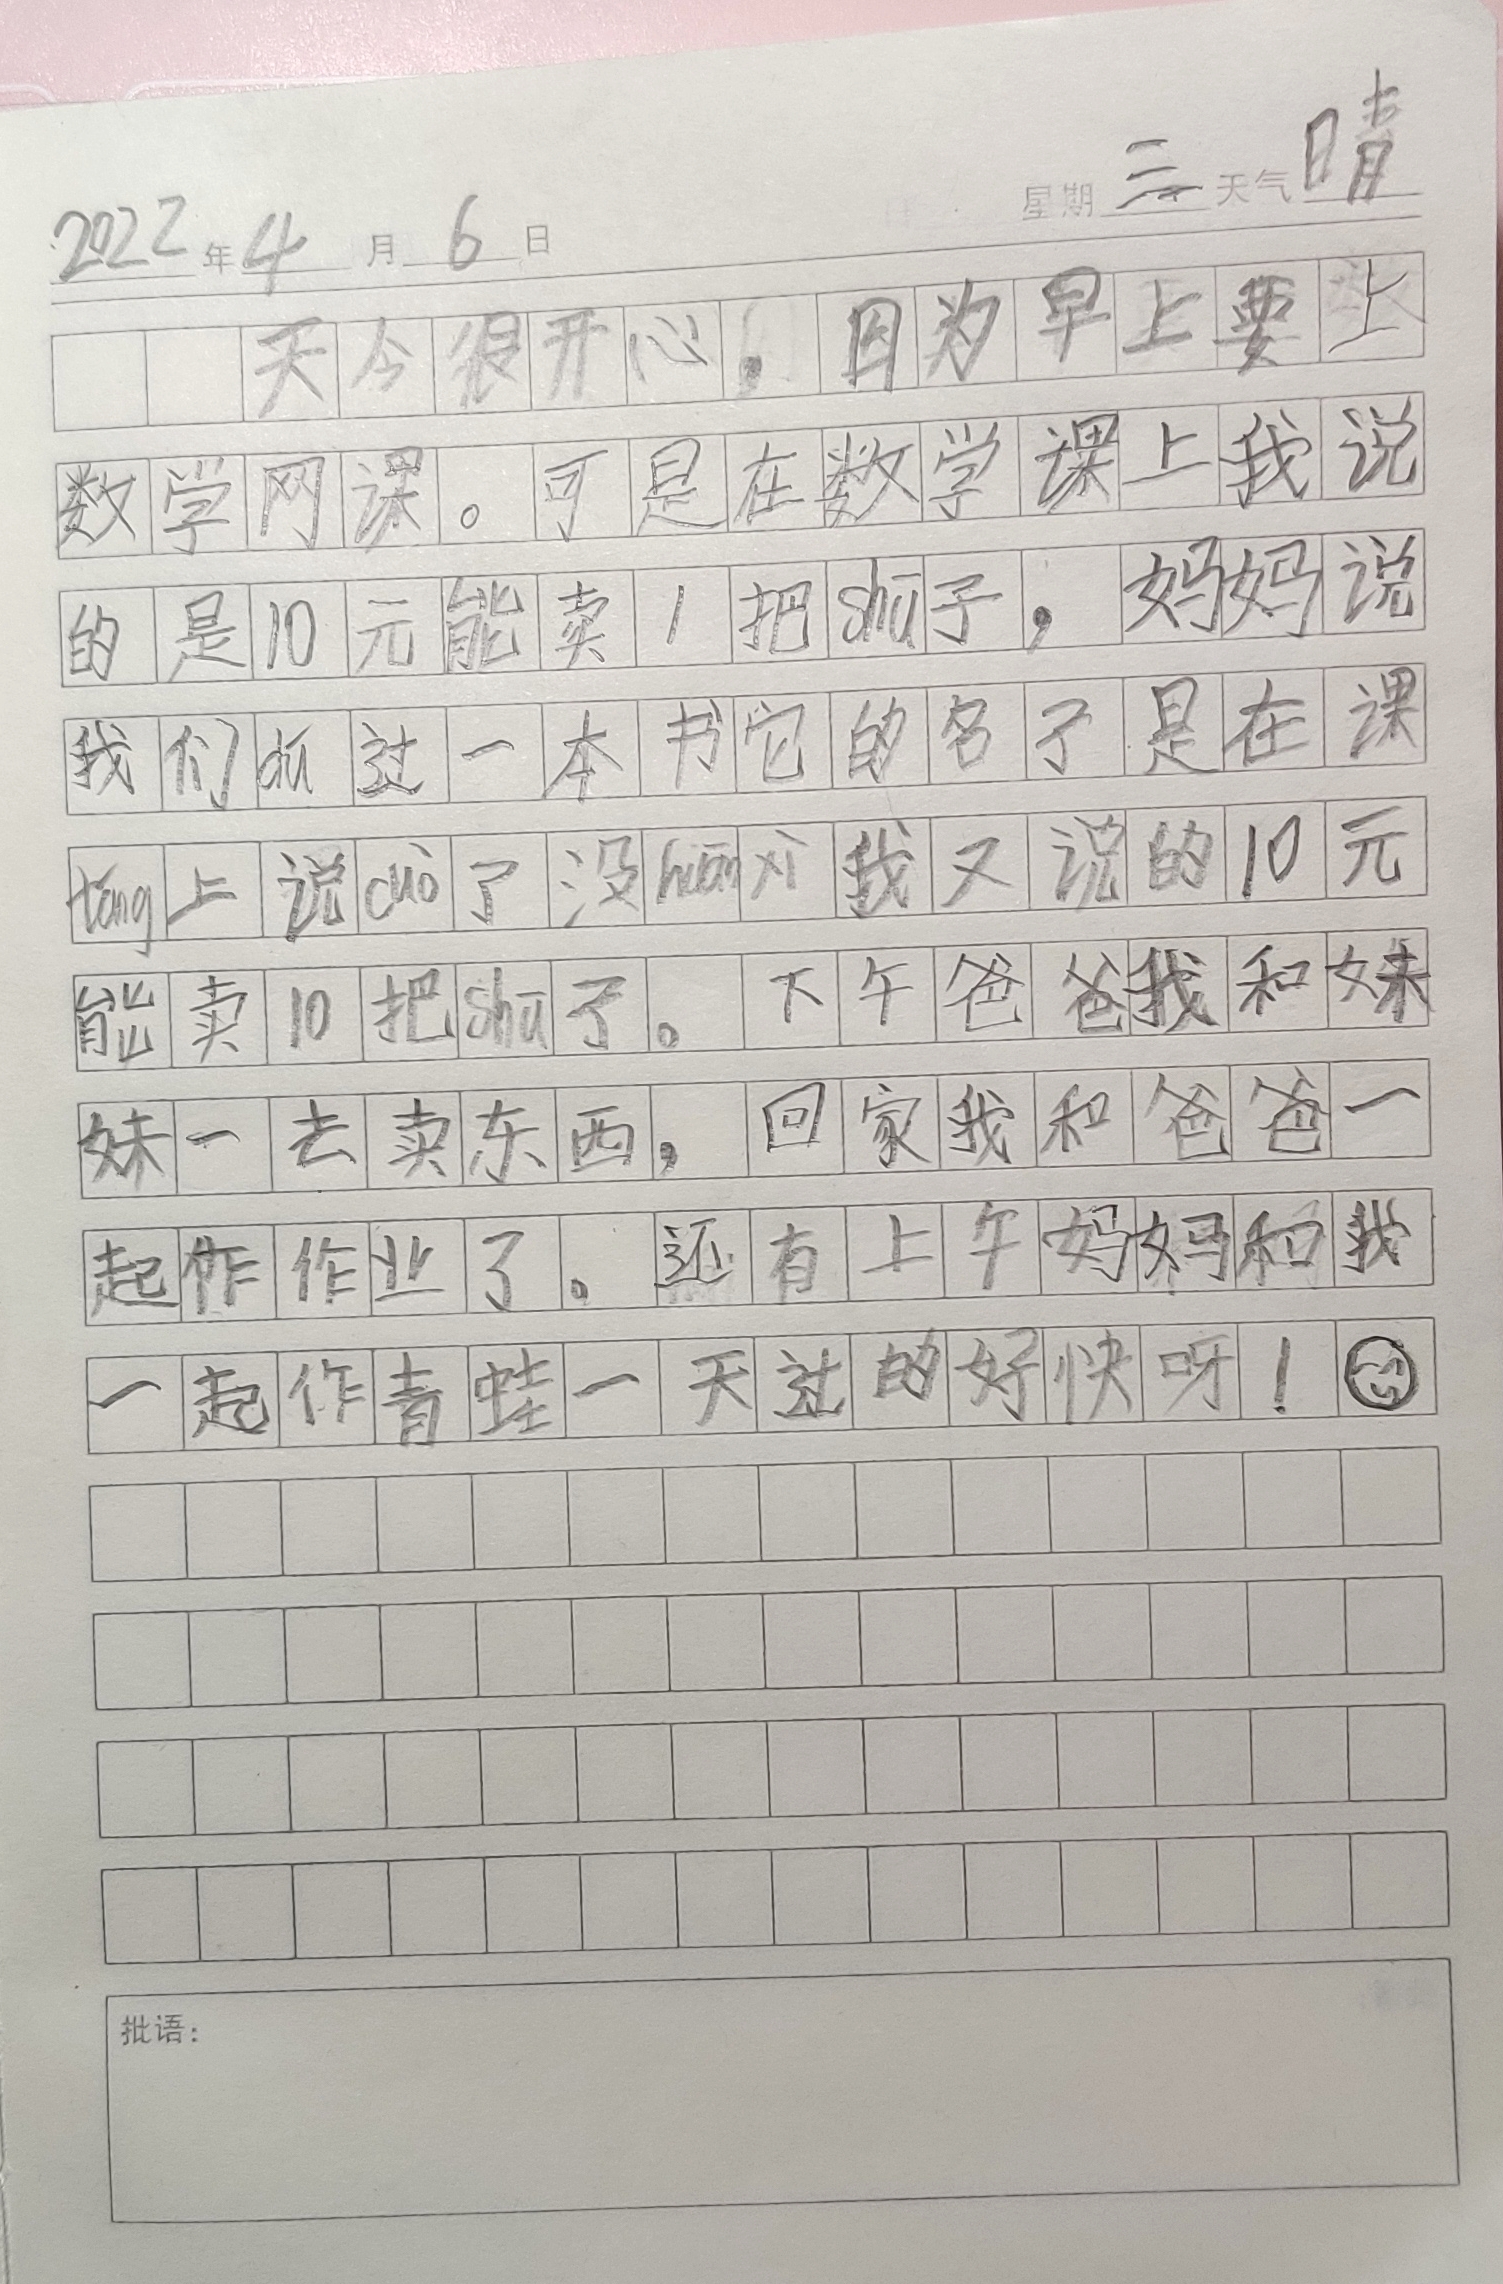 2022年4月6日 星期三天气晴
天今很开心，因为早上要上
数学网课。可是在数学课上我说
的是10元能卖1把shū子，妈妈说
我们dú过一本书它的名子是在课
táng上说cuò了没huān xì我又说的10元
能卖10把shū子。下午爸爸我和妹
妹一去卖东西，回家我和爸爸一
起作作业了。还有上午妈妈和我
一起作青蛙一天过的好快呀！
批语：